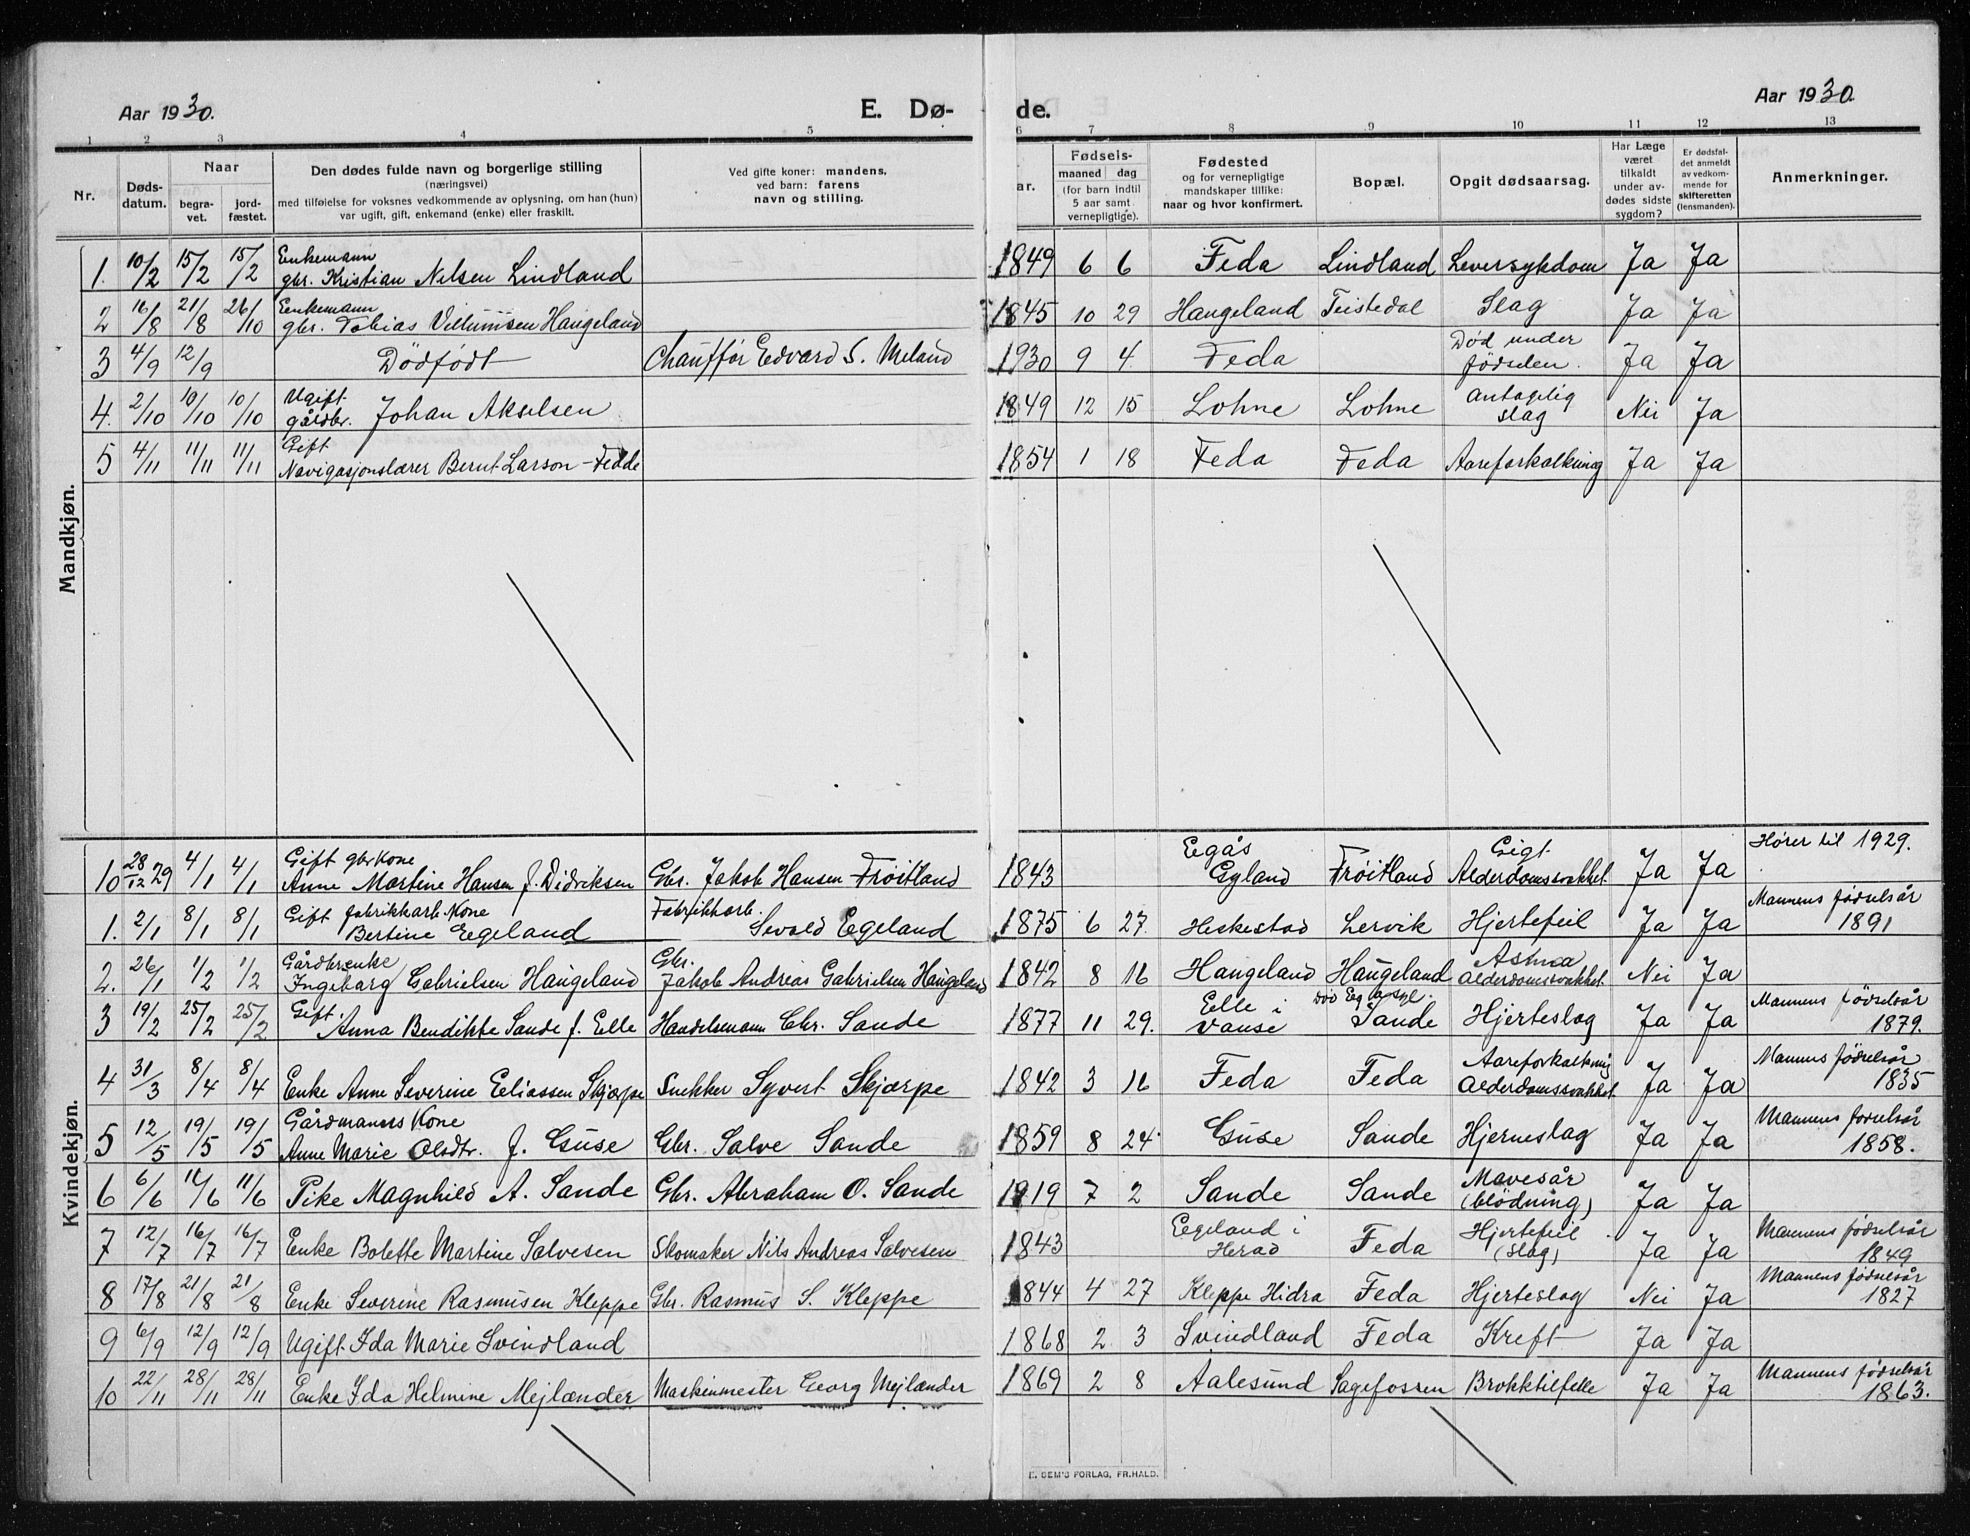 Aar 1930.
E. Dø-
de.
Aar 1930.
1 2 3 4 5 6 7 8 9 10 11 12 13
Nr.
Døds-
datum.
Naar
begra-
vet.
jord-
fæstet.
Den dødes fulde navn og borgerlige stilling
(næringsvei)
med tilføielse for voksnes vedkommende av oplysning, om han (hun)
var ugift, gift, enkemand (enke) eller fraskilt.
Ved gifte koner: mandens,
ved barn: farens
navn og stilling.
ar.
Fødsels-
maaned dag
(for barn indtil
5 aar samt
vernepligtige).
Fødested
og for vernepligtige
mandskaper tillike:
naar og hvor konfirmert.
Bopæl.
Opgit dødsaarsag.
Har Læge
været
tilkaldt
under av-
dødes sidste
sygdom?
Er dødsfal-
det anmeldt
av vedkom-
mende for
skifteretten
(lensmanden).
Anmerkninger.
Mandkjøn.
Enkemann
1. 10/2 15/2 15/2 gbr. Kristian Nilsen Lindland 1849 6 6 Feda Lindland Leversykdom Ja Ja
Enkemann
2 16/8 21/8 26/10 gbr. Tobias Villumsen Haugeland 1845 10 29 Haugeland Teistedal Slag Ja Ja
Død under
3 4/9 12/9 Dödfödt Chauffør Edvard S. Meland 1930 9 4 Feda fødselen. Ja Ja
Ugift antagelig
4. 2/10 10/10 10/10 gårdbr. Johan Akselsen 1849 12 15 Lohne Lohne slag Nei Ja
Gift
5 4/11 11/11 11/11 Navigasjonslærer Bernt Larson-Fedde 1854 1 18 Feda Feda Aareforkalkning Ja Ja
Kvindekjøn.
Gift gbr kone Egås Gigt Hører til 1929.
10 28/12 29 4/1 4/1 Anne Martine Hansen f. Didriksen Gbr. Jakob Hansen Frøitland 1843 Gyland Frøitland Alderdomssvakhet Ja Ja
Gift fabrikkarb. Kone Fabrikkarb. Mannens fødselsår
1. 2/1 8/1 8/1 Bertine Egeland Sevald Egeland 1875 6 27 Heskestad Lervik Hjertefeil Ja Ja 1891
Gårdbrenke Gbr. Astma
2. 26/1 1/2 1/2 Ingeborg Gabrielsen Haugeland Jakob Andreas Gabrielsen Haugeland 1842 8 16 Haugeland Haugeland Alderdomssvakhet Nei Ja
Gift Elle i død Eg asyl. Mannens födselsår
3 19/2 25/2 25/2 Anna Bendikte Sande f. Elle Handelsmann Chr. Sande 1877 11 29. Vanse Sande Hjerteslag Ja Ja 1879.
Aareforkalkning Mannens födselsår
4 31/3 8/4 8/4 Enke Anne Severine Eliassen Skjærpe Snekker Syvert Skjærpe 1842 3 16 Feda Feda Alderdomssvakhet Ja Ja 1835
Gårdmanns Kone Mannens fødselsår
5 12/5 19/5 19/5 Anne Marie Olsdtr. f. Guse Gbr. Salve Sande 1859 8 24 Guse Sande Hjerneslag Ja Ja 1858.
Mavesår
6 6/6 11/6 11/6 Pike Magnhild A. Sande Gbr. Abraham O. Sande 1919 7 2 Sande Sande (blödning) Ja Ja
Egeland i Hjertefeil Mannens fødselsår
7 12/7 16/7 16/7 Enke Bolette Martine Salvesen Skomaker Nils Andreas Salvesen 1843 Herad Feda (slag) Ja Ja 1849
Mannens fødselsår
8 17/8 21/8 21/8 Enke Severine Rasmusen Kleppe Gbr. Rasmus S. Kleppe 1844 4 27 Kleppe Hidra Feda Hjerteslag Nei Ja 1827
9 6/9 12/9 12/9 Ugift Ida Marie Svindland 1868 2 3 Svindland Feda Kreft Ja Ja
Mannens fødselsår
10 22/11 28/11 28/11 Enke Ida Helmine Mejlænder Maskinmester Georg Mejlænder 1869 2 8 Aalesund Sagefossen Brokktilfelle Ja Ja 1863.
E. SEM'S FORLAG, FR.HALD.